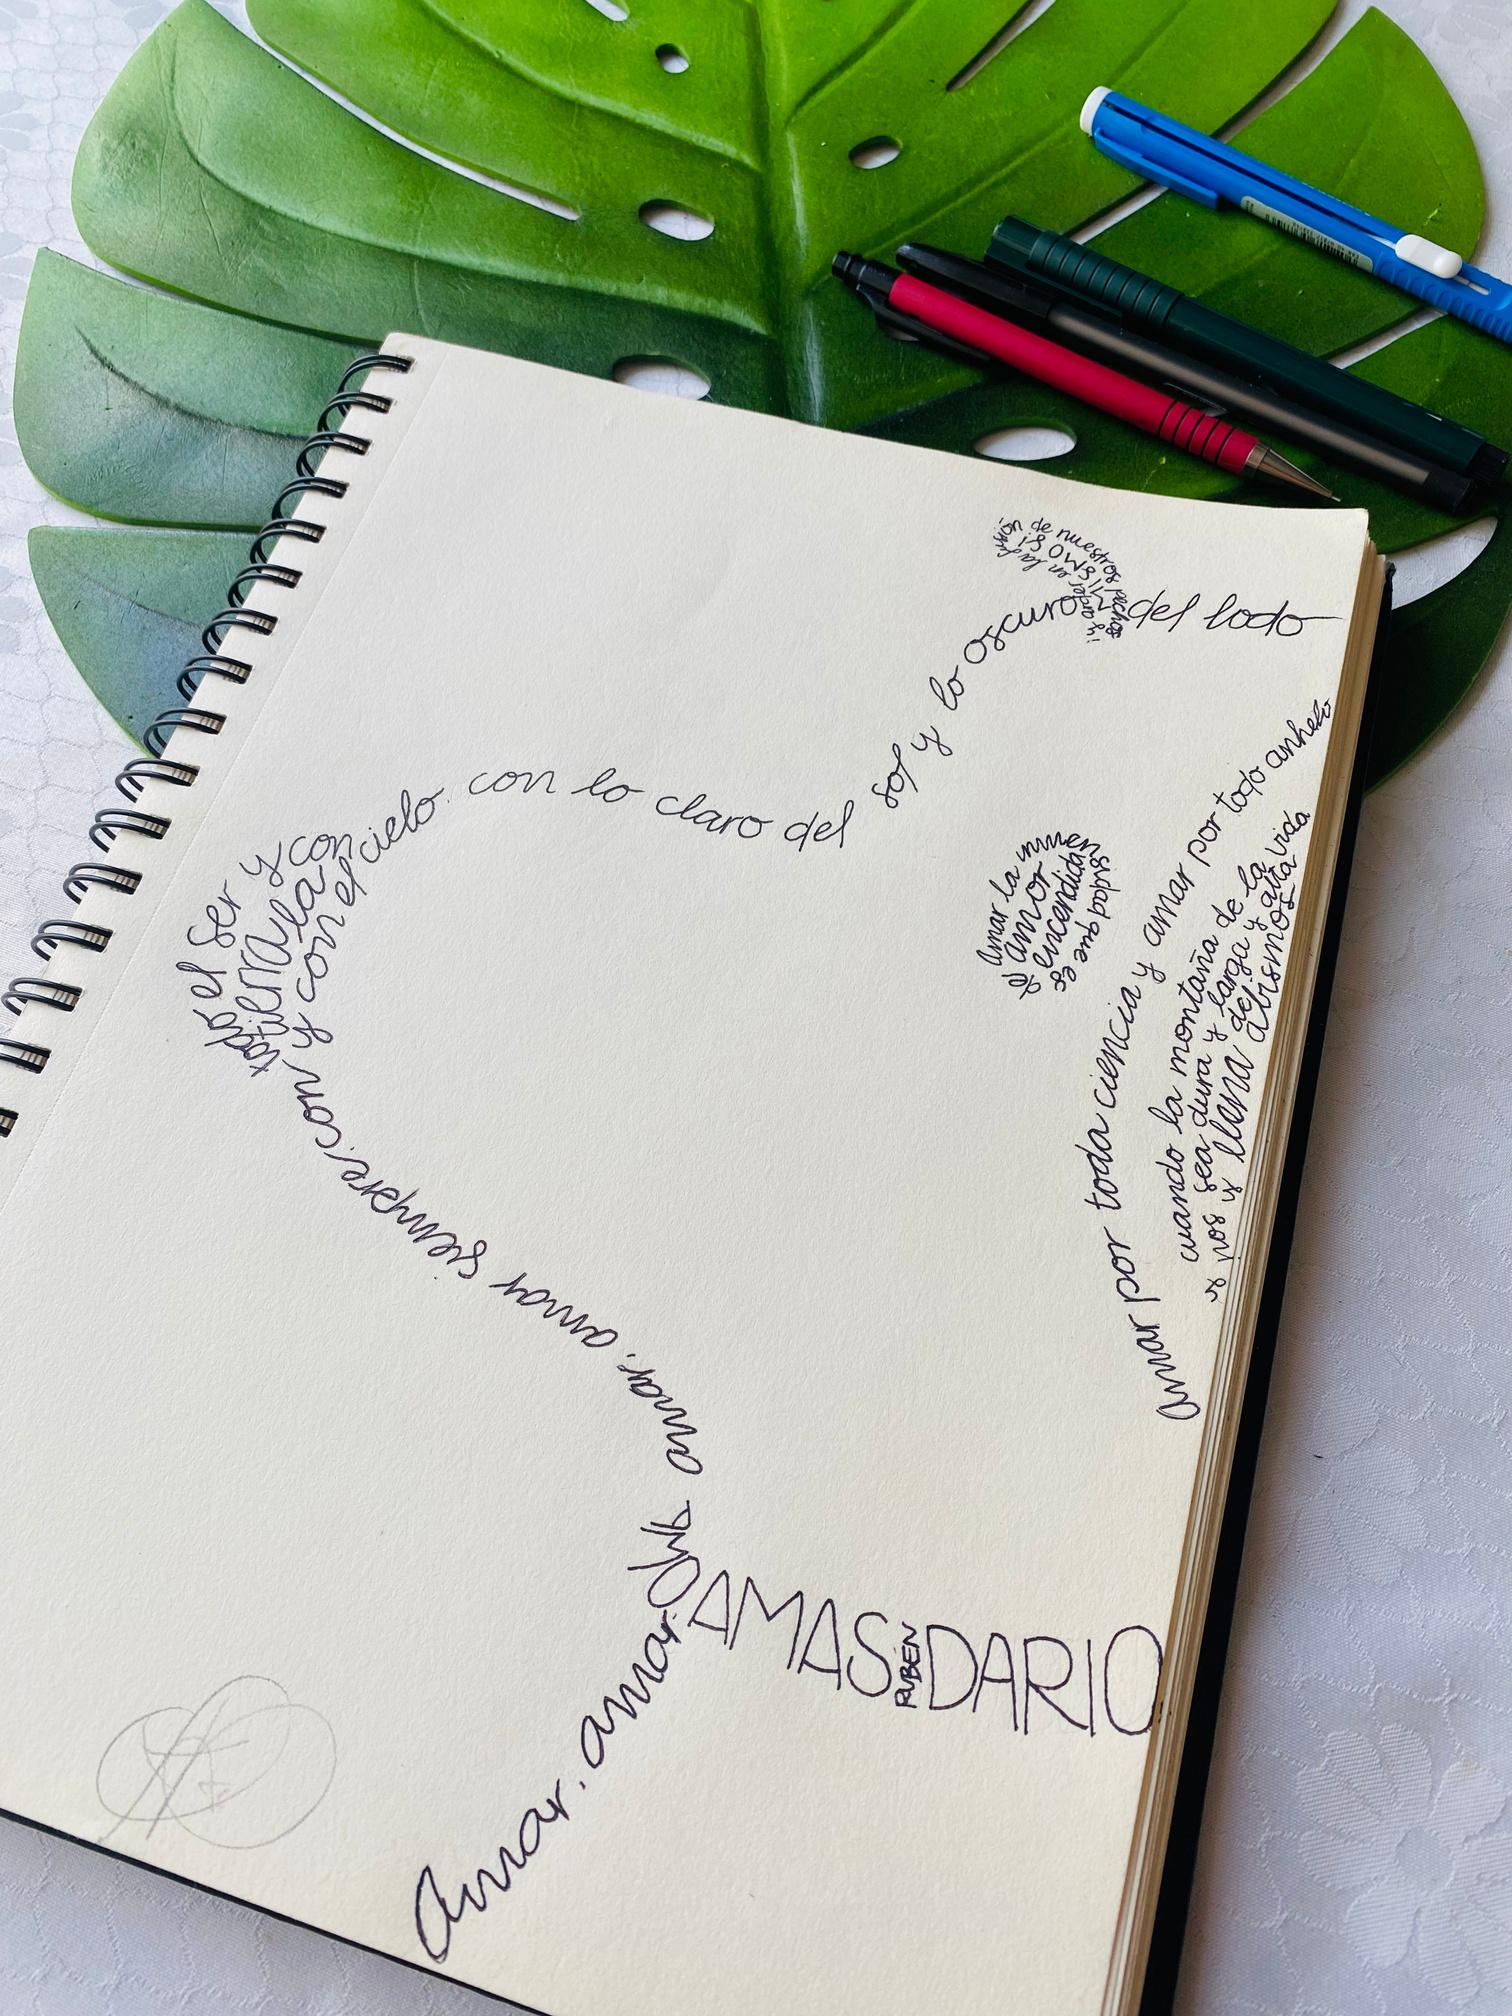 AMO
AMAS
RUBÉN
DARIO
Amar, amar, amar, amar siempre, con
todo el ser y con
la tierra
y con el cielo,
con lo claro del sol y lo oscuro del lodo
amar por toda ciencia y amar por todo anhelo
cuando la montaña de la
vida
nos sea dura y larga y alta
y llena de abismos
amar la inmensidad que es
de amor
encendida
¡y arder en la fusión de nuestros pechos
MISMOS!